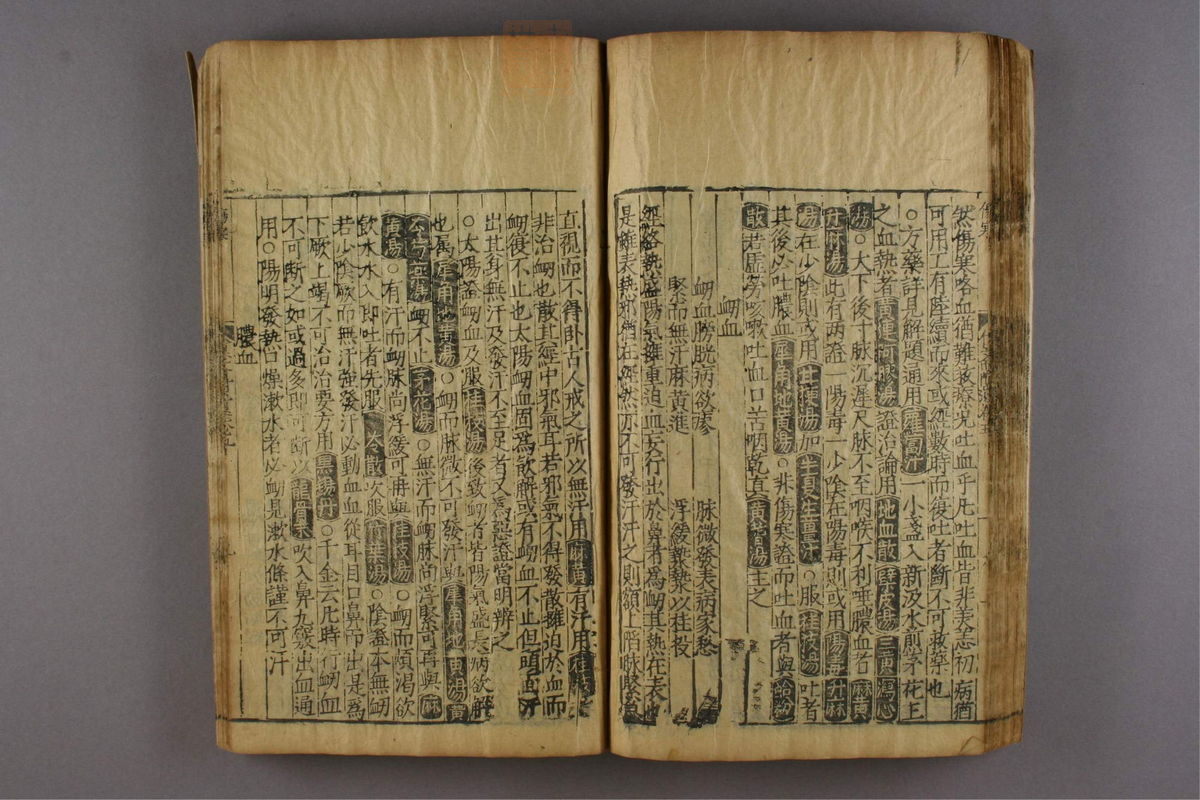 然傷寒咯血猶難救療况吐血乎凡吐血皆非表恙初病猶
可用工有陸續而來或經數時而復吐者斷不可救藥也
○方藥詳見解題通用一小盞入新汲水煎茅花正
之血熱者黃連阿膠湯證治論用地血散檗皮湯三黃瀉心
湯○大下後寸脉沉遲尺脉不至咽喉不利唾膿血者麻黃
升麻湯此有两證一陽毒一少陰在陽毒則或用陽毒升麻
湯在少陰則或用甘桔湯加半夏生薑汁○服桂枝湯吐者
其後必吐膿血犀角地黃湯○非傷寒證而吐血者與蛤粉
散若虛勞咳嗽吐血口苦咽乾直黃湯主之
衂血
衂血膀胱病欲瘳 脉微發表病家愁
緊而無汗麻黃進 浮緩蒸蒸以桂投
經絡熱盛陽氣擁重迫血妄行出於鼻者為衂其熱在表也
是雖表熱邪猶在經然亦不可發汗汗之則額上陷脉緊急
直視而不得卧古人戒之所以無汗用麻黃有汗用桂枝
非治衂也散其經中邪氣耳若邪氣不得發散擁迫於血而
衂復不止也太陽衂血固為欲解或有衂血不止但頭面汗
出其身無汗及發汗不至足者又為惡證當明辨之
○太陽證衂血及服桂枝湯後致衂者皆陽氣盛長病欲解
也屬犀角地黃湯○衂而脉微不可發汗與犀角地黃湯黃
芩芍藥湯衂不止茅花湯○無汗而衂脉尚浮緊可再與麻
黃湯○有汗而衂脉尚浮緩可再與桂枝湯○衂而煩渴欲
飲水水入即吐者先服五苓散次服竹葉湯○陰證本無衂
若少陰厥而無汗強發汗必動血血從耳目口鼻而出是為
下厥上竭不可治治要方用黑錫丹○千金云凡時行衂血
不可斷之如或過多即可斷以龍骨末吹入鼻九竅出血通
用○陽明發熱口燥漱水者必衂見漱水條謹不可汗
膿血